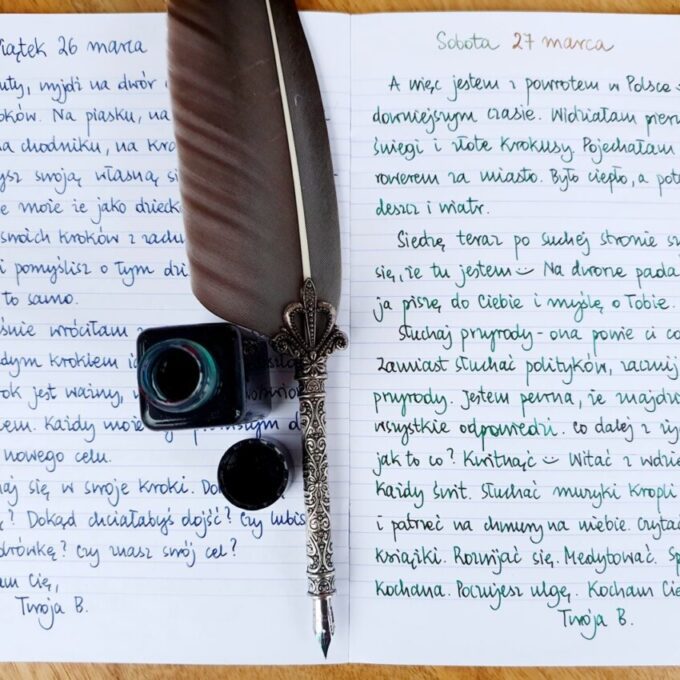 iątek 26 marca
uty, wyjdź na dwór
oków. Na piasku, na
a chodniku, na kro
ysz swoją własną si
e może że jako dzieck
swoich kroków z
i pomyślisz o tym dzi
to samo.
śnie wróciłam z
żdym krokiem
rok jest ważny,
em. Każdy może
nowego celu.
aj się w swoje kroki. Do
ę? Dokąd chciałabyś dojść? Czy lubis
drówkę? Czy masz swój cel?
am Cię,
Twoja B.
Sobota 27 marca
A więc jestem z powrotem w Polsce
dawniejszym czasie. Widziałam pierw
śniegi i złote krokusy. Pojechałam
rowerem za miasto. Było ciepło, a pot
deszcz i wiatr.
Siedzę teraz po suchej stronie sz
się, że tu jestem Na dworze pada
ja piszę do Ciebie i myślę o Tobie.
Słuchaj przyrody - ona powie ci co
Zamiast słuchać polityków, zacznij
przyrody. Jestem pewna, że znajdzi
wszystkie odpowiedzi. Co dalej z ży
jak to co? Kwitnąć Witać z wdzi
każdy świt. Słuchać muzyki kropli
i patrzeć na chmury na niebie. Czytać
książki. Rozwijać się. Medytować. Sp
Kochana. Poczujesz ulgę. Kocham Cię
Twoja B.